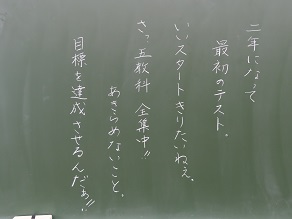 二年になって
最初のテスト。
いいスタートきりたいねぇ。
さっ五教科 全集中!!
あきらめないこと。
目標を達成させるんだぁ!!